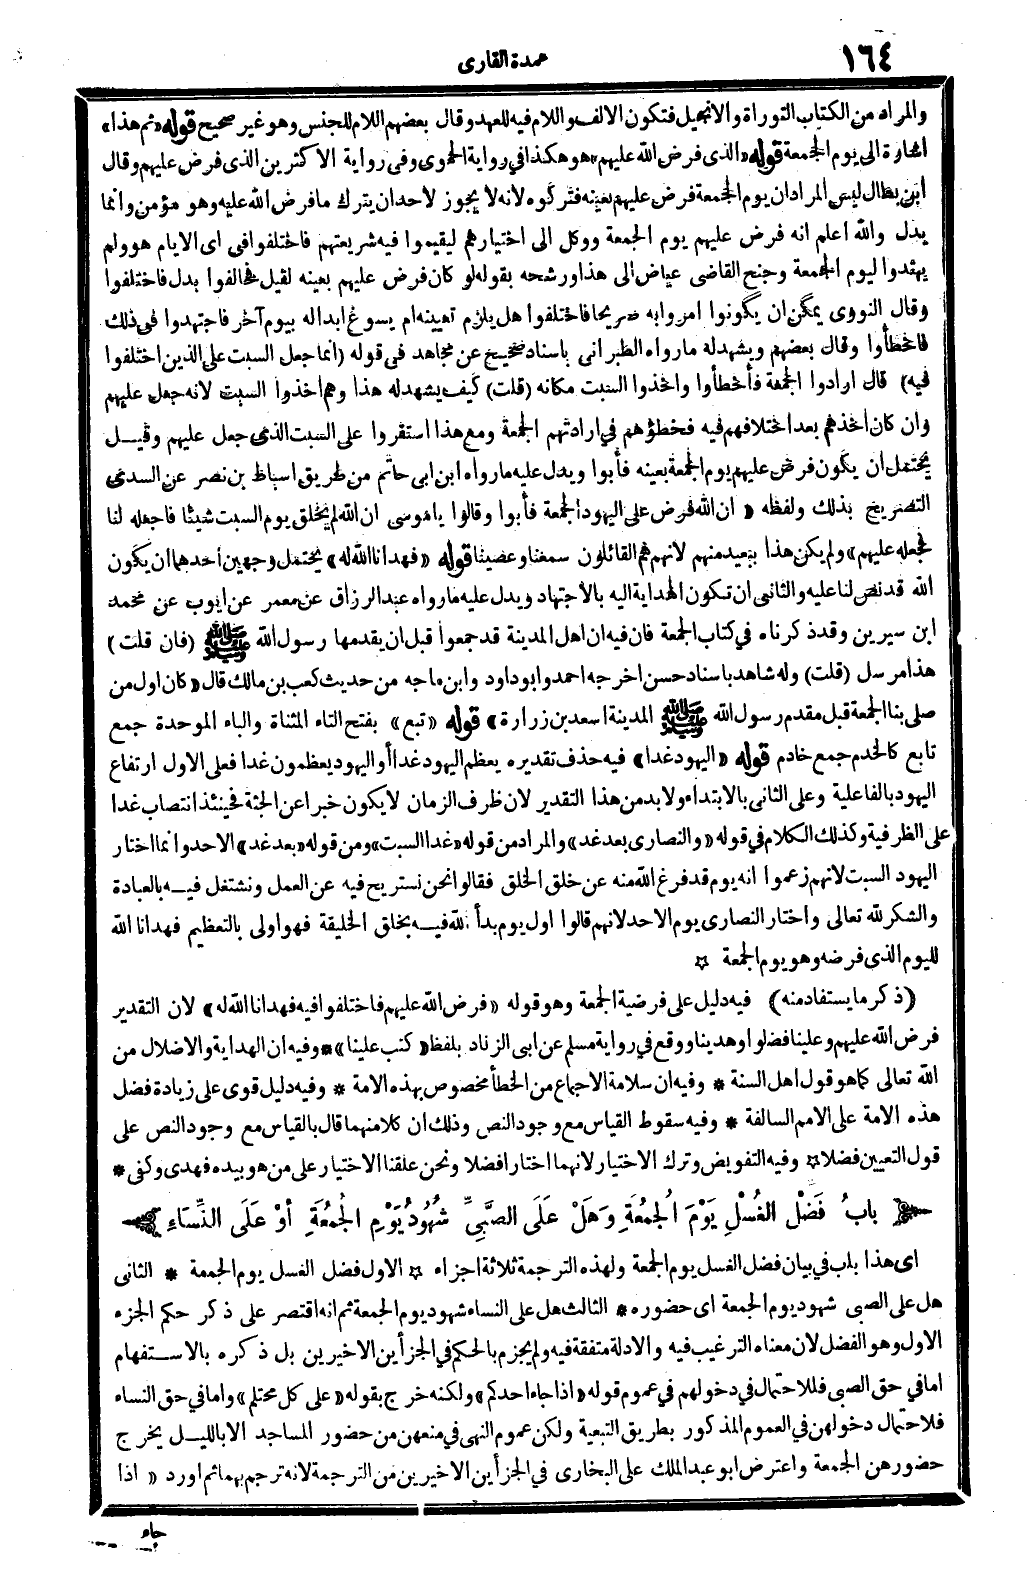 ١٦٤
عمدة القارى
والمراد من الكتاب التوراة والانجيل فتكون الالف واللام فيه للعهد وقال بعضهم اللام للجنس وهو غير صحيح قوله «ثم هذا»
اشارة الى يوم الجمعة قوله «الذى فرض الله عليهم» هو هكذا فى رواية الحموى وفى رواية الاكثرين الذى فرض عليهم وقال
ابن بطال ليس المراد ان يوم الجمعة فرض عليهم بعينه فتركوه لانه لا يجوز لاحد ان يترك ما فرض الله عليه وهو مؤمن وانما
يدل والله اعلم انه فرض عليهم يوم الجمعة ووكل الى اختيارهم ليقيموا فيه شريعتهم فاختلفوا فى اى الايام هو ولم
يهتدوا ليوم الجمعة وجنح القاضى عياض الى هذا ورشحه بقوله لو كان فرض عليهم بعينه لقيل فخالفوا بدل فاختلفوا
وقال النووى يمكن ان يكونوا امروا به صريحا فاختلفوا هل يلزم تعيينه ام يسوغ ابداله بيوم آخر فاجتهدوا فى ذلك
فاخطأوا وقال بعضهم ويشهد له ما رواه الطبرانى باسناد صحيح عن مجاهد فى قوله (انما جعل السبت على الذين اختلفوا
فيه) قال ارادوا الجمعة فأخطأوا واخذوا السبت مكانه (قلت) كيف يشهد له هذا وهم اخذوا السبت لانه جعل عليهم
وان كان أخذهم بعد اختلافهم فيه فخطؤهم فى ارادتهم الجمعة ومع هذا استقروا على السبت الذى جعل عليهم وقيــل
يحتمل ان يكون فرض عليهم يوم الجمعة بعينه فأبوا ويدل عليه ما رواه ابن ابى حاتم من طريق اسباط بن نصر عن السدى
التصريح بذلك ولفظه « ان الله فرض على اليهود الجمعة فأبوا وقالوا ياموسى ان الله لم يخلق يوم السبت شيئا فاجعله لنا
فجعله عليهم» ولم يكن هذا ببعيد منهم لانهم هم القائلون سمعنا وعصينا قوله «فهدانا الله له» يحتمل وجهين أحدهما ان يكون
الله قد نص لنا عليه والثانى ان تكون الهداية اليه بالاجتهاد ويدل عليه ما رواه عبد الرزاق عن معمر عن ايوب عن محمد
ابن سيرين وقد ذكرناه فى كتاب الجمعة فان فيه ان اهل المدينة قد جمعوا قبل ان يقدمها رسول الله ﷺ (فان قلت)
هذا مرسل (قلت) وله شاهد باسناد حسن اخرجه احمد وابو داود وابن ماجه من حديث كعب بن مالك قال «كان اول من
صلى بنا الجمعة قبل مقدم رسول الله ﷺ المدينة اسعد بن زرارة» قوله «تبع» بفتح التاء المثناة والباء الموحدة جمع
تابع كالخدم جمع خادم قوله «اليهود غدا» فيه حذف تقديره يعظم اليهود غدا أو اليهود يعظمون غدا فعلى الاول ارتفاع
اليهود بالفاعلية وعلى الثانى بالابتداء ولا بد من هذا التقدير لان ظرف الزمان لا يكون خبرا عن الجثة فحينئذ انتصاب غدا
على الظرفية وكذلك الكلام فى قوله «والنصارى بعد غد» والمراد من قوله «غدا السبت» ومن قوله «بعد غد» الاحد وانما اختار
اليهود السبت لانهم زعموا انه يوم قد فرغ الله منه عن خلق الخلق فقالوا نحن نستريح فيه عن العمل ونشتغل فيــه بالعبادة
والشكر لله تعالى واختار النصارى يوم الاحد لانهم قالوا اول يوم بدأ الله فيــه بخلق الخليقة فهو اولى بالتعظيم فهدانا الله
لليوم الذى فرضه وهو يوم الجمعة ☆
(ذكر ما يستفاد منه) فيه دليل على فرضية الجمعة وهو قوله «فرض الله عليهم فاختلفوا فيه فهدانا الله له» لان التقدير
فرض الله عليهم وعلينا فضلوا وهدينا ووقع فى رواية مسلم عن ابى الزناد بلفظ «كتب علينا» * وفيه ان الهداية والاضلال من
الله تعالى كما هو قول اهل السنة * وفيه ان سلامة الاجماع من الخطأ مخصوص بهذه الامة * وفيه دليل قوى على زيادة فضل
هذه الامة على الامم السالفة * وفيه سقوط القياس مع وجود النص وذلك ان كلا منهما قال بالقياس مع وجود النص على
قول التعيين فضلا ☆ وفيه التفويض وترك الاختيار لانهما اختارا فضلا ونحن علقنا الاختيار على من هو بيده فهدى وكفى *
باب فَضْلِ الغُسْلِ يَوْمَ الجُمعَةِ وَهَلْ عَلَى الصَّبِىِّ شُهُودُ يَوْمِ الجُمُعَةِ أوْ عَلَى النِّسَاءِ
اى هذا باب فى بيان فضل الغسل يوم الجمعة ولهذه الترجمة ثلاثة اجزاء ☆ الاول فضل الغسل يوم الجمعة * الثانى
هل على الصبى شهود يوم الجمعة اى حضوره * الثالث هل على النساء شهود يوم الجمعة ثم انه اقتصر على ذكر حكم الجزء
الاول وهو الفضل لان معناه الترغيب فيه والادلة متفقة فيه ولم يجزم بالحكم فى الجزأين الاخيرين بل ذكره بالاســتفهام
اما فى حق الصبى فللاحتمال فى دخولهم فى عموم قوله «اذا جاء احدكم» ولكنه خرج بقوله «على كل محتلم» واما فى حق النساء
فلاحتمال دخولهن فى العموم المذكور بطريق التبعية ولكن عموم النهى فى منعهن من حضور المساجد الا بالليــل يخرج
حضورهن الجمعة واعترض ابو عبد الملك على البخارى فى الجزأين الاخيرين من الترجمة لانه ترجم بهما ثم اورد « اذا
جاء